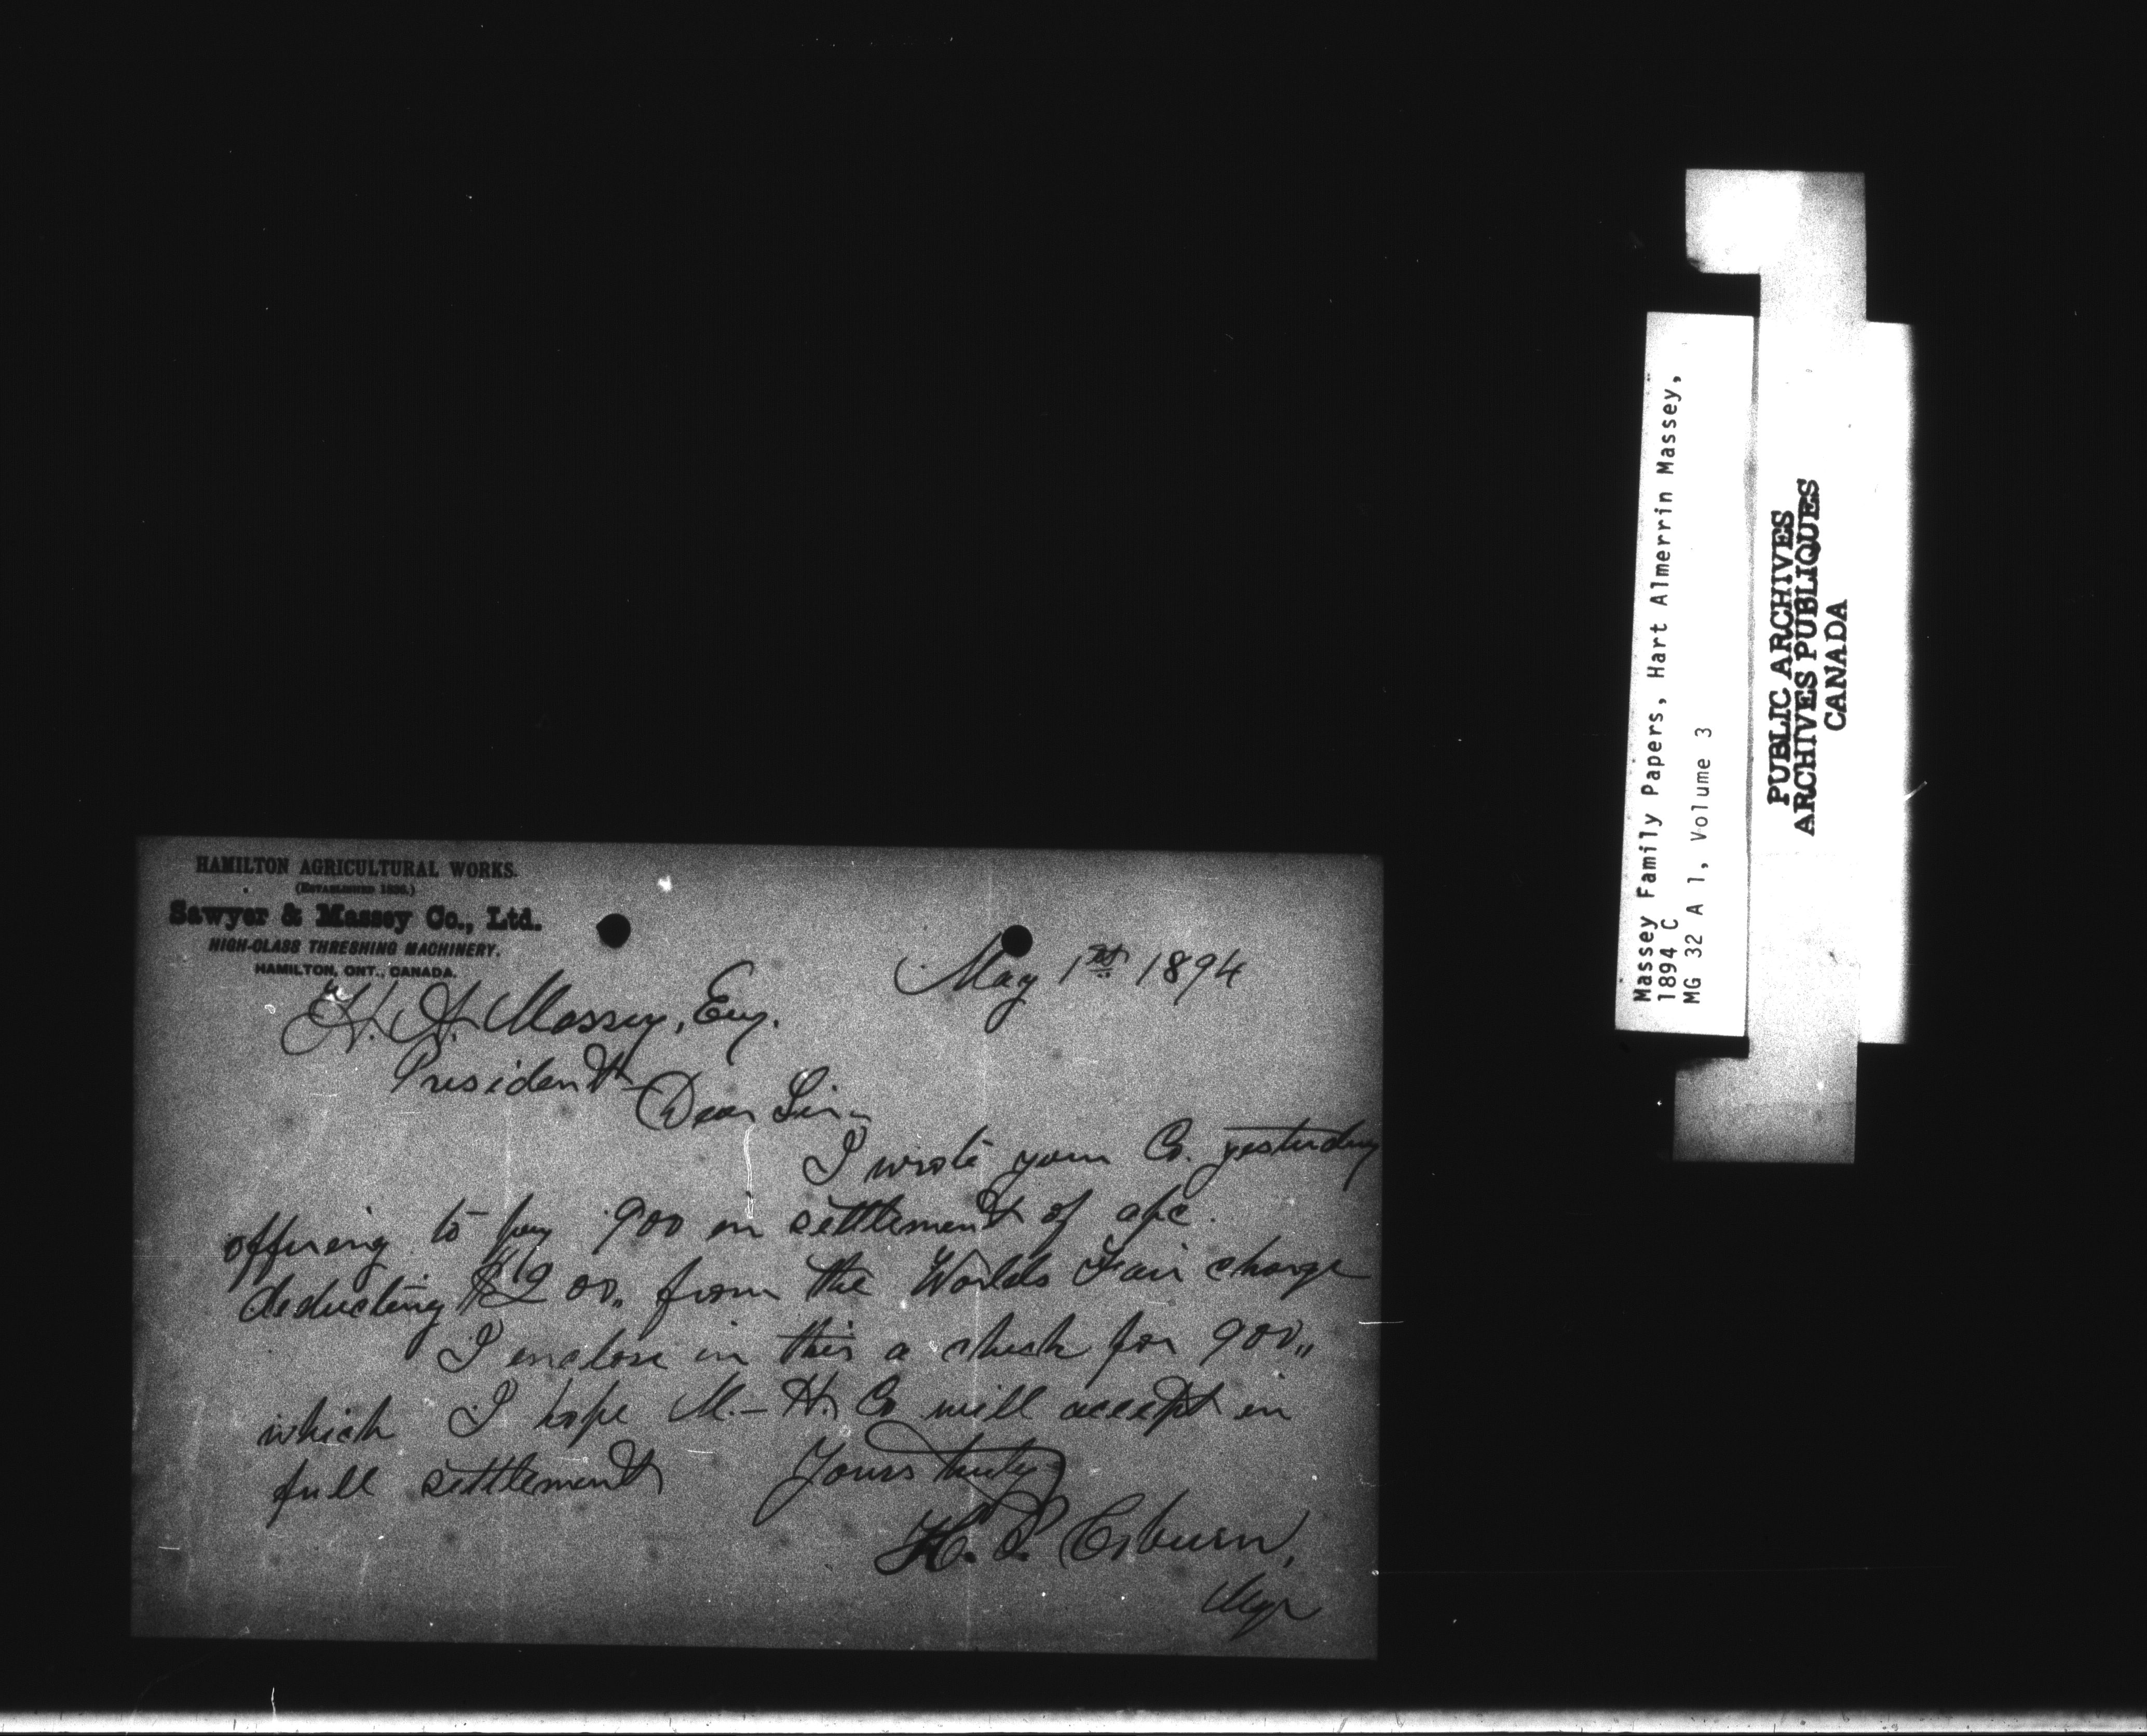 HAMILTON AGRICULTURAL WORKS.
(ESTABLISHED 1836.)
Sawyer & Massey Co., Ltd.
HIGH-CLASS THRESHING MACHINERY.
HAMILTON, ONT., CANADA.
May 1st 1894
H. A. Massey, Esq.
President
Dear Sir-
I wrote your Co. yesterday
offering to pay 900 in settlement of a/c.
deducting $200,, from the Worlds Fair charge
I enclose in this a check for 900,,
which I hope M.-H. Co will accept in
full settlement
Yours truly
H. P. Coburn,
Mgr
Massey Family Papers, Hart Almerrin Massey,
1894 C
MG 32 A 1, Volume 3
PUBLIC ARCHIVES
ARCHIVES PUBLIQUES
CANADA